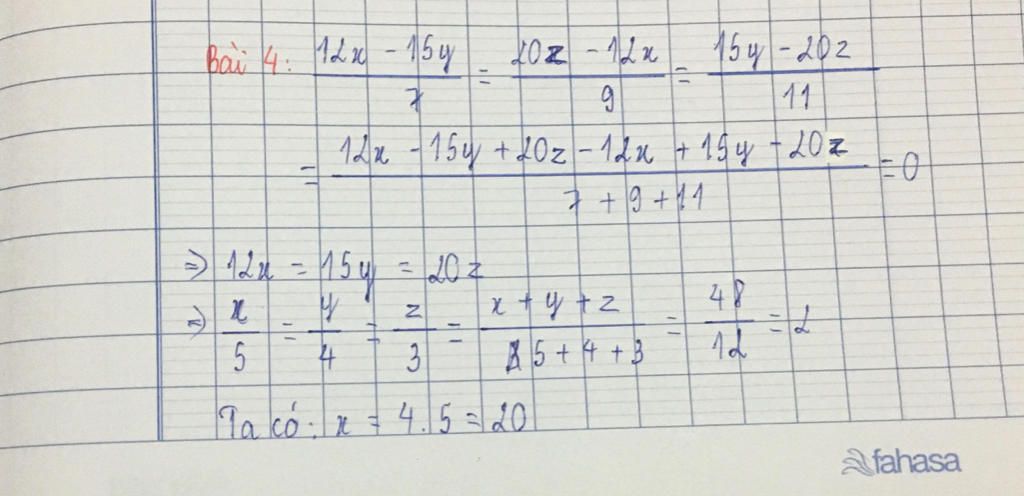 Bài 4: (12x - 15y)/7 = (20z - 12x)/9 = (15y - 20z)/11
= (12x - 15y + 20z - 12x + 15y - 20z)/(7 + 9 + 11) = 0
=> 12x = 15y = 20z
=> x/5 = y/4 = z/3 = (x + y + z)/(5 + 4 + 3) = 48/12 = 2
Ta có: x = 4.5 = 20
fahasa